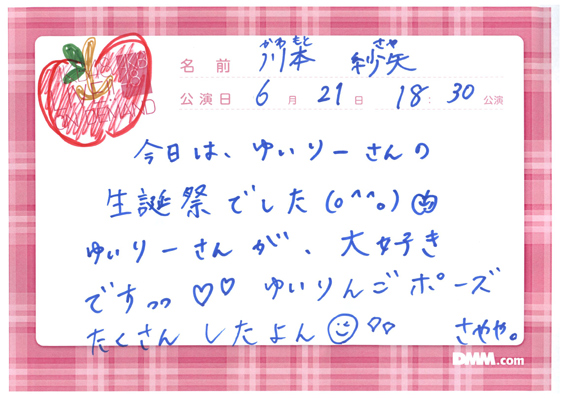 かわもと さや
名前 川本 紗矢
公演日 6月 21日 18:30公演
今日は、ゆいりーさんの
生誕祭でした(o^^o)
ゆいりーさんが、大好き
ですっっ♡♡ ゆいりんごポーズ
たくさん したよん さやや。
DMM.com